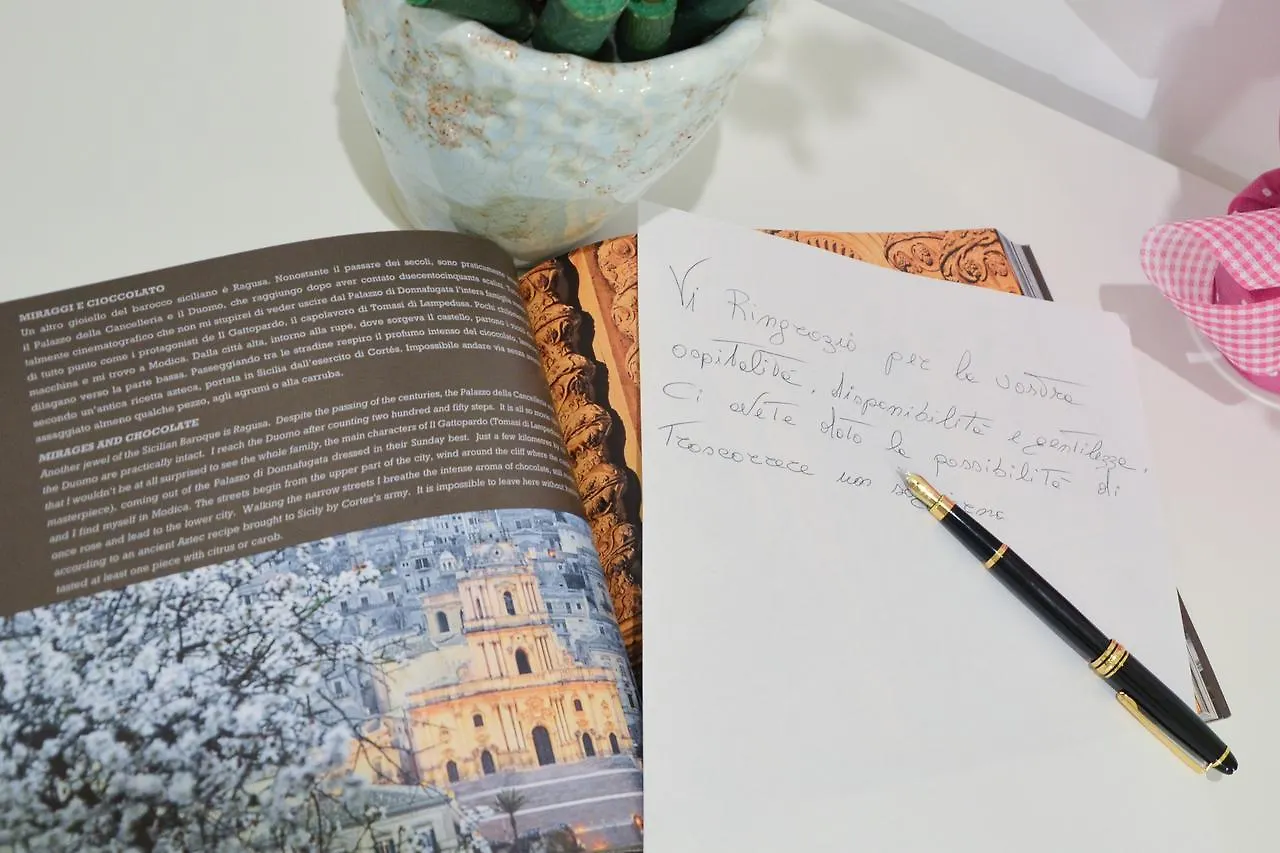 MIRAGGI E CIOCCOLATO
Un altro gioiello del barocco siciliano è Ragusa. Nonostante il passare dei secoli, sono praticamente
il Palazzo della Cancelleria e il Duomo, che raggiungo dopo aver contato duecentocinquanta scalini.
talmente cinematografico che non mi stupirei di veder uscire dal Palazzo di Donnafugata l'intera famiglia
di tutto punto come i protagonisti de Il Gattopardo, il capolavoro di Tomasi di Lampedusa. Pochi chilometri
macchina e mi trovo a Modica. Dalla città alta, intorno alla rupe, dove sorgeva il castello, partono i
dilagano verso la parte bassa. Passeggiando tra le stradine respiro il profumo intenso del cioccolato,
secondo un'antica ricetta azteca, portata in Sicilia dall'esercito di Cortés. Impossibile andare via senza
assaggiato almeno qualche pezzo, agli agrumi o alla carruba.
MIRAGES AND CHOCOLATE
Another jewel of the Sicilian Baroque is Ragusa. Despite the passing of the centuries, the Palazzo della Cancelleria
the Duomo are practically intact. I reach the Duomo after counting two hundred and fifty steps. It is all so
that I wouldn't be at all surprised to see the whole family, the main characters of Il Gattopardo (Tomasi di
masterpiece), coming out of the Palazzo di Donnafugata dressed in their Sunday best. Just a few kilometres
and I find myself in Modica. The streets begin from the upper part of the city, wind around the cliff where the
once rose and lead to the lower city. Walking the narrow streets I breathe the intense aroma of chocolate,
according to an ancient Aztec recipe brought to Sicily by Cortez's army. It is impossible to leave here without
tasted at least one piece with citrus or carob.
Vi Ringrazio per la vostra
ospitalità, disponibilità e gentilezza.
Ci avete dato la possibilità di
Trascorrere una